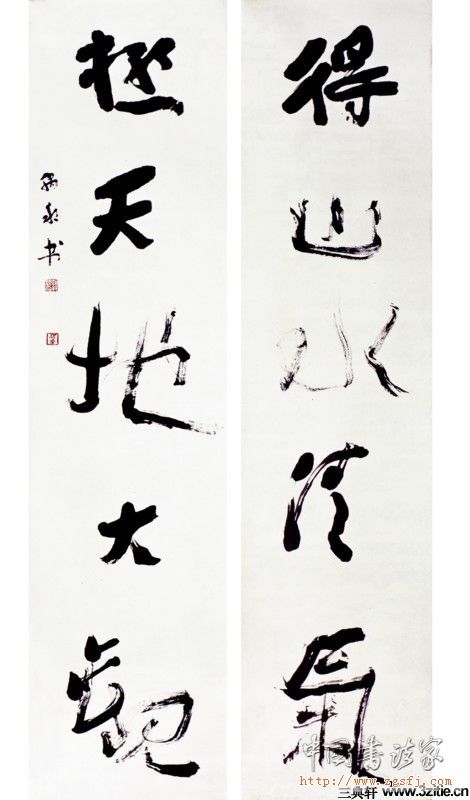 得山水清氣
極天地大觀
书
中国书法家
http://www.zgsfj.com
三典轩 www.3zitie.cn